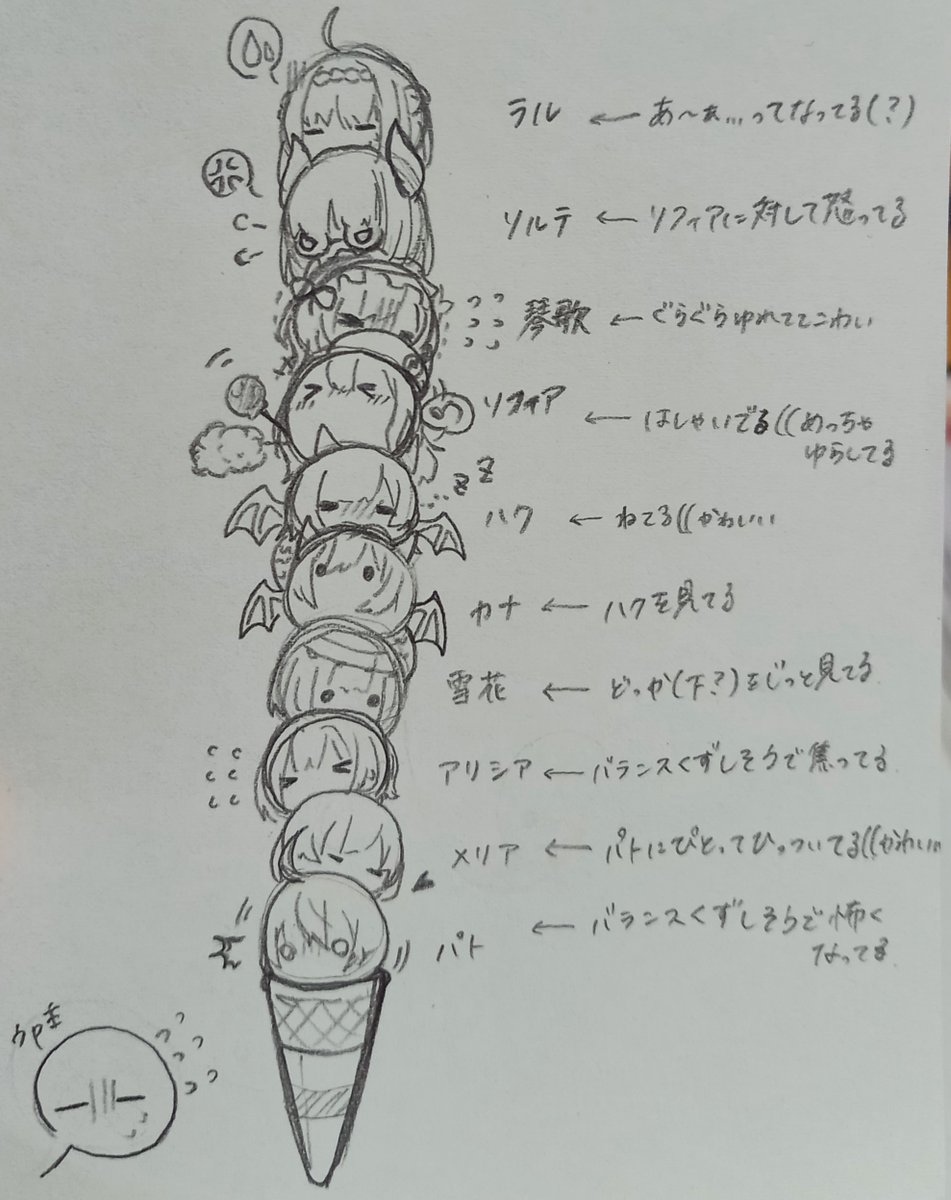 ラル ← あ〜ぁ...ってなってる(?)
ソルテ ← リフィアに対して怒ってる
琴歌 ← ぐらぐらゆれててこわい
リフィア ← はしゃいでる((めっちゃ
ゆらしてる
zz
ハク ← ねてる((かわいい
カナ ← ハクを見てる
雪花 ← どっか(下?)をじっと見てる
アリシア ← バランスくずしそうで焦ってる
メリア ← パトにぴとってひっついてる((かわいい
パト ← バランスくずしそうで怖く
なってる
うp主